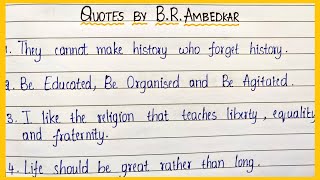 QUOTES BY B.R.AMBEDKAR
1. They cannot make history who forget history.
2. Be Educated, Be Organised and Be Agitated.
3. I like the religion that teaches liberty, equality
and fraternity.
4. Life should be great rather than long.